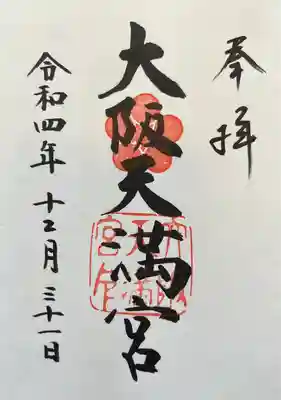 奉拝
大阪天満宮
令和四年 十二月 三十一日